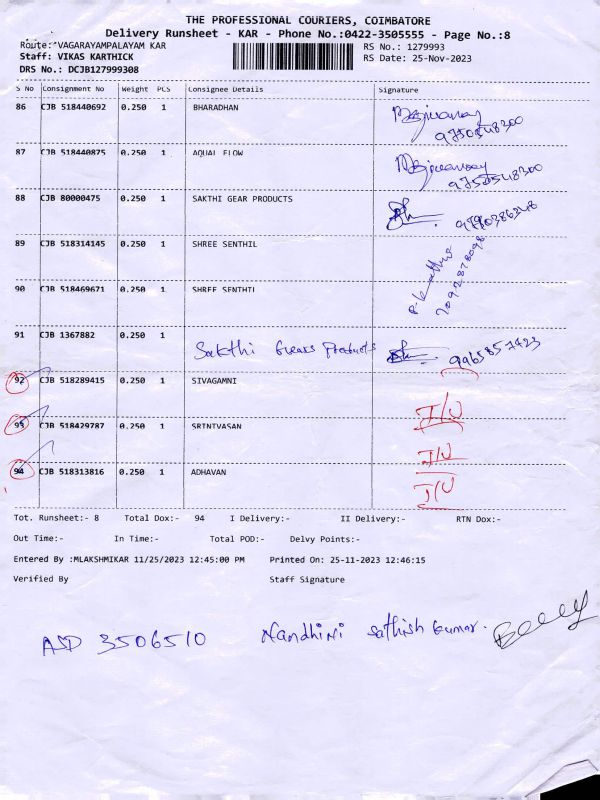 THE PROFESSIONAL COURIERS, COIMBATORE
Delivery Runsheet - KAR - Phone No.:0422-3505555 - Page No.:8
Route:^VAGARAYAMPALAYAM KAR RS No.: 1279993
Staff: VIKAS KARTHICK RS Date: 25-Nov-2023
DRS No.: DCJB127999308
S No Consignment No Weight PCS Consignee Details Signature
86 CJB 518440692 0.250 1 BHARADHAN
9750548300
87 CJB 518440875 0.250 1 AQUAL FLOW
9750548300
88 CJB 80000475 0.250 1 SAKTHI GEAR PRODUCTS
89 CJB 518314145 0.250 1 SHREE SENTHIL
90 CJB 518469671 0.250 1 SHREE SENTHIL
91 CJB 1367882 0.250 1 Sakthi Gears Products 9965857423
92 CJB 518289415 0.250 1 SIVAGAMNI I/U
93 CJB 518429787 0.250 1 SRINIVASAN I/U
94 CJB 518313816 0.250 1 ADHAVAN I/U
Tot. Runsheet:- 8 Total Dox:- 94 I Delivery:- II Delivery:- RTN Dox:-
Out Time:- In Time:- Total POD:- Delvy Points:-
Entered By :MLAKSHMIKAR 11/25/2023 12:45:00 PM Printed On: 25-11-2023 12:46:15
Verified By Staff Signature
ASD 3506510 Nandhini Sathish Kumar.